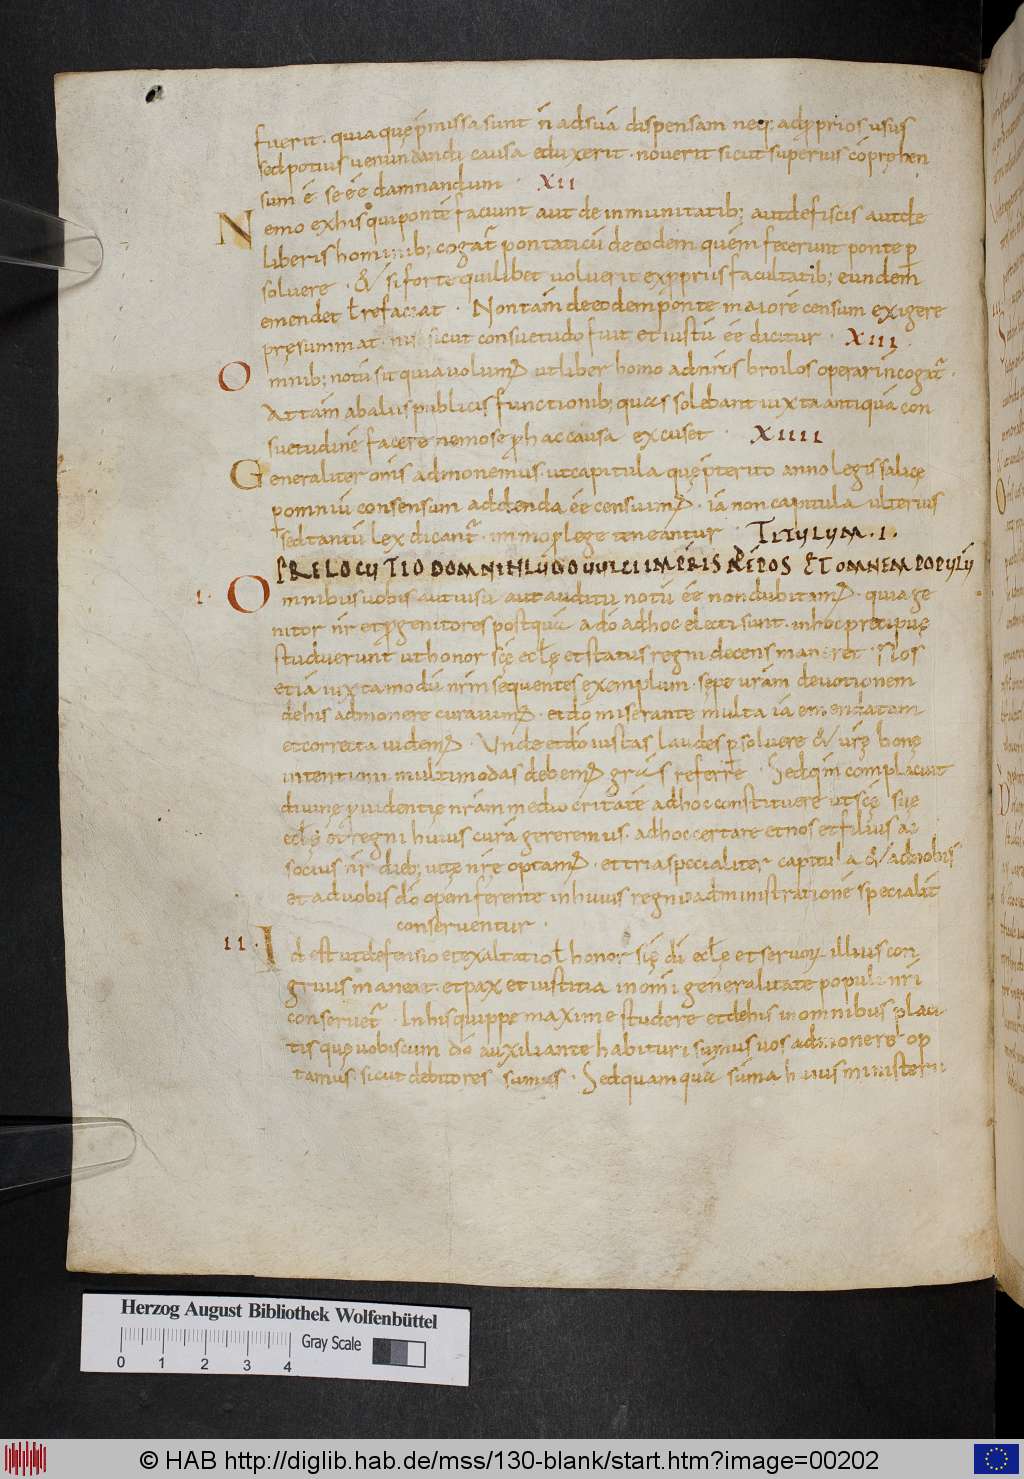 fuerit . quia quę p̄missa sunt n̄ ad suā dispensam neq; ad p̱prios usus
sed potius uenundandi causa eduxerit . nouerit sicut superius cōpręhen
sum ē se eē damnandum . XII
Nemo ex his qui pontē faciunt aut de inmunitatib; aut de fiscis aut de
liberis hominib; cogat̄ pontaticū de eodem quem fecerunt ponte p̱
soluere . & si forte quilibet uoluerit ex p̱priis facultatib; eundem
emendet ł reficiat . Non tam̄ de eodem ponte maiorē censum exigere
pręsummat . nisi sicut consuetudo fuit et iustū eē dicitur . XIII .
Omnib; notū sit quia uolumꝰ ut liber homo ad nr̄os broilos operari n̄ cogat̄ .
Attam̄ ab aliis publicis functionib; quas solebant iuxta antiquā con
suetudinē facere nemo se p̱ hac causa excuset . XIIII
Generaliter om̄s admonemus . ut capitula quę p̄terito anno legis salicę
p̱ omniū consensum addenda eē censuimꝰ . iā non capitula ulterius
sed tantū lex dicant̄ . immo p̱ lege teneantur . TITULUM . I .
PRELOCUTIO DOMNI HLUDOUUICI IMP̄RIS AD EP̄OS & OMNEM POPULŪ
I . Omnibus uobis aut uisu aut auditu notū eē non dubitamꝰ . quia ge
nitor nr̄ et p̱genitores postquā a dō ad hoc electi sunt . in hoc precipuę
studuerunt ut honor scę̄ eccłę et status regni decens maneret . Nos
etiā iuxta modū nr̄m sequentes exemplum . sępe ur̄am deuotionem
de his admonere curauimꝰ . et dō miserante multa iā emendatam
et correcta uidemꝰ . Unde et dō iustas laudes p̱soluere & ur̄ę bonę
intentioni multimodas debemꝰ gr̄as referre . Sed qm̄ complacuit
diuinę p̱uidentię nr̄am mediocritatē ad hoc constituere ut scę̄ suę
eccłę et regni huius curā gereremus . ad hoc certare et nos et filius ac
socius nr̄ dieb; uitę nr̄ę optamꝰ . et tria specialiter capitula & a nobis
et a uobis dō opem ferente in huius regni administrationē specialit̄
conseruentur .
II . Id est ut defensio et exaltatio ł honor scę̄ dī eccłę et seruorꝝ illius con
gruus maneat . et pax et iustitia in omni generalitate populi nr̄i
conseruet̄ . In his quippe maxime studere et de his in omnibus placi
tis quę uobiscum dō auxiliante habituri sumus uos admonere op
tamus . sicut debitores sumus . Sed quamquā suma huius ministerii
Herzog August Bibliothek Wolfenbüttel
Gray Scale
0 1 2 3 4
© HAB http://diglib.hab.de/mss/130-blank/start.htm?image=00202